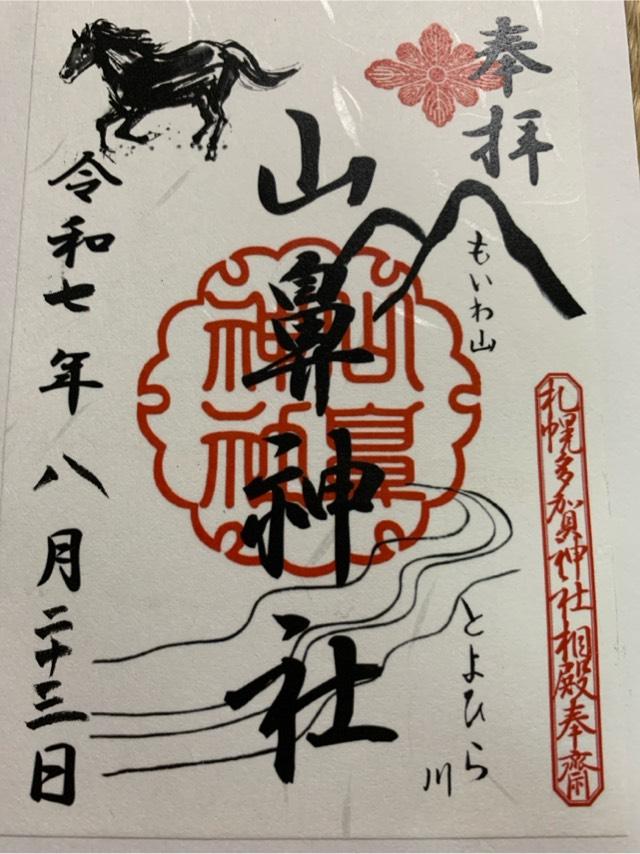 奉拝
もいわ山
札幌多賀神社相殿奉齋
山鼻神社
山鼻神社
とよひら川
令和七年八月二十三日